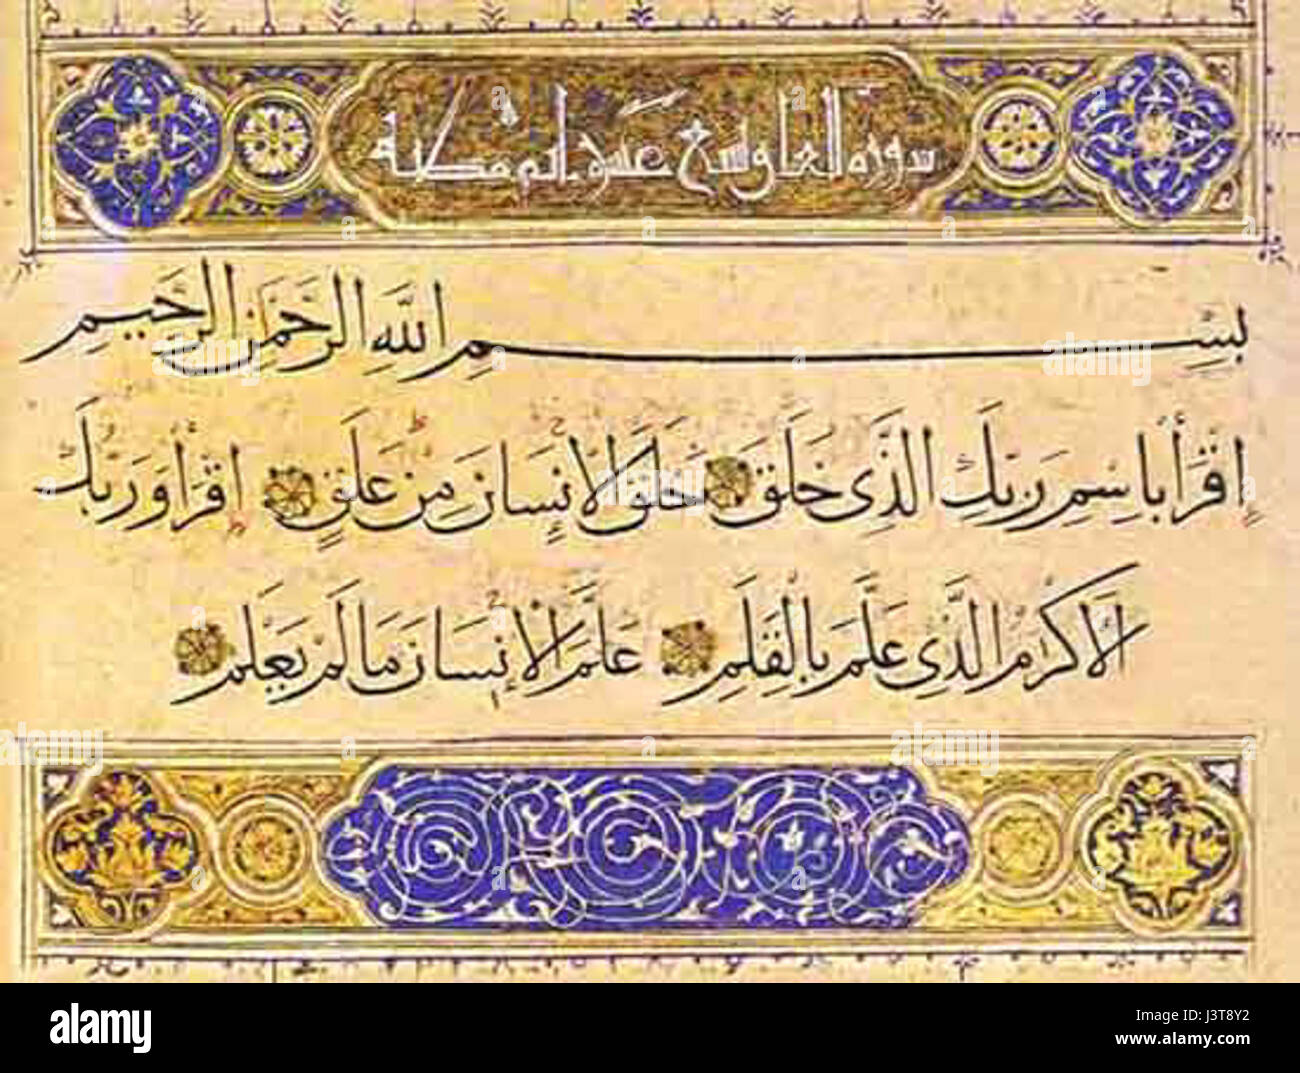 سورة العلق تسع عشرة اية مكية
بِسْمِ اللَّهِ الرَّحْمَٰنِ الرَّحِيمِ
اِقْرَأْ بِاسْمِ رَبِّكَ الَّذِى خَلَقَ خَلَقَ الْاِنْسَانَ مِنْ عَلَقٍ اِقْرَأْ وَرَبُّكَ
الْاَكْرَمُ الَّذِى عَلَّمَ بِالْقَلَمِ عَلَّمَ الْاِنْسَانَ مَا لَمْ يَعْلَمْ
alamy stock photo
J3T8Y2
www.alamy.com